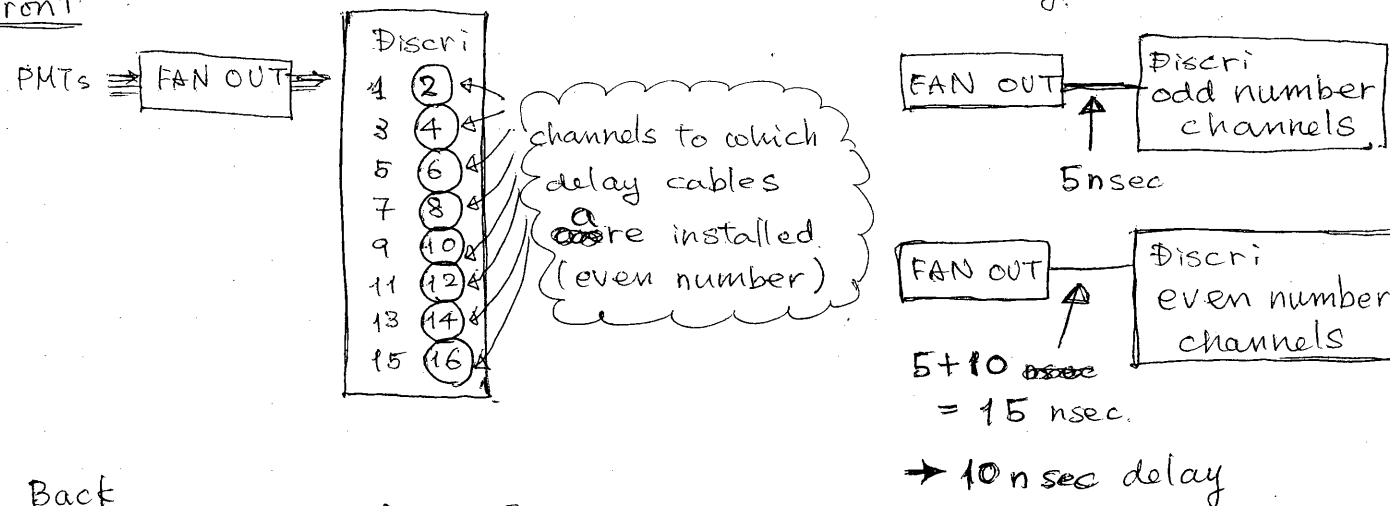 Discri
PMTs FAN OUT
1 2
3 4
5 6
7 8
9 10
11 12
13 14
15 16
channels to which
delay cables
are installed
(even number)
FAN OUT
Discri
odd number
channels
5nsec
FAN OUT
Discri
even number
channels
5+10
= 15 nsec.
→ 10 nsec delay
Back